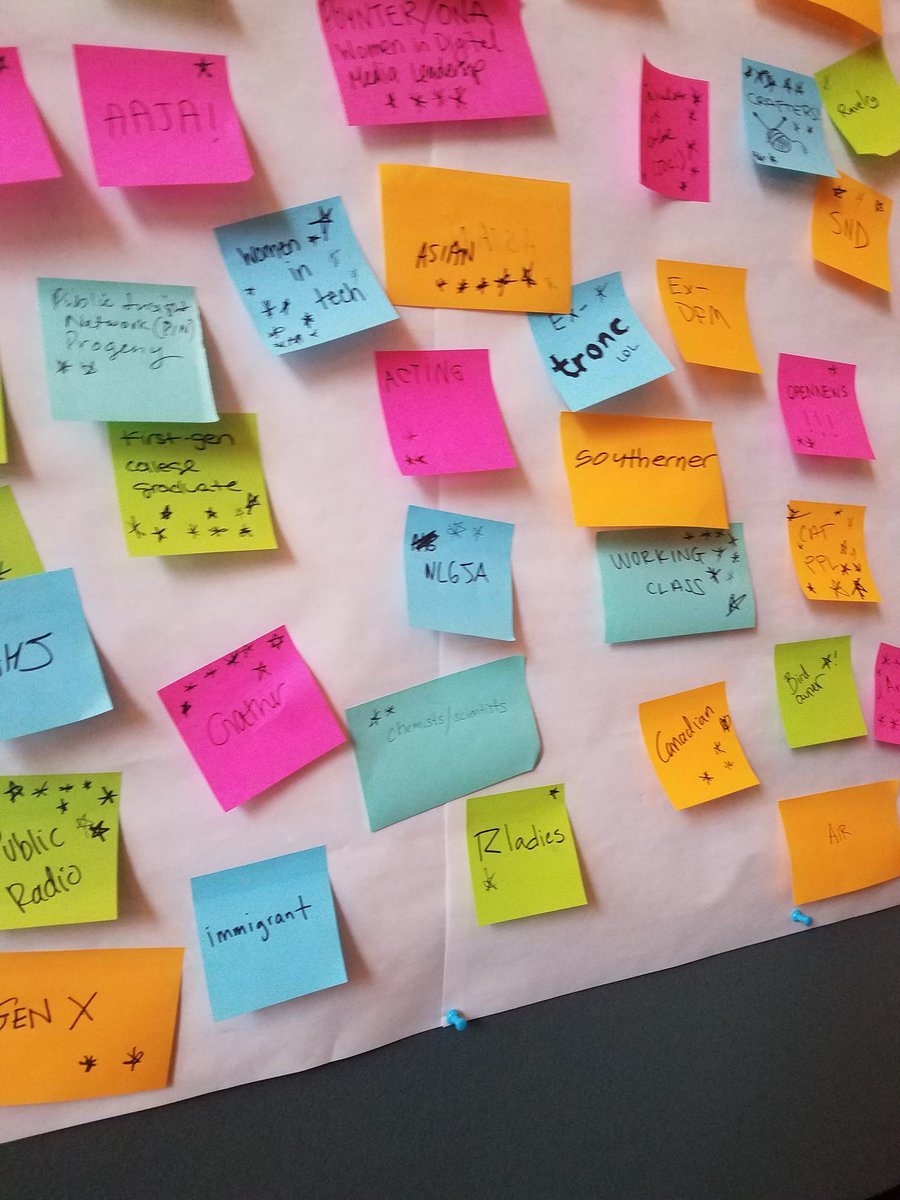 POYNTER/ONA
Women in Digital
Media Leadership
AAJA!
CRAFTERS!
Ravelry
SND
Women
in
tech
ASIAN
Public Insight
Network (PIN)
Progeny
Ex-
tronc
LOL
Ex-
DFM
ACTING
OPENNEWS
!!!
first-gen
college
graduate
Southerner
NLGJA
WORKING
CLASS
CAT
PPL
HJ
Gather
chemists/scientists
Canadian
Bird
owner
Public
Radio
R ladies
AIR
immigrant
GEN X